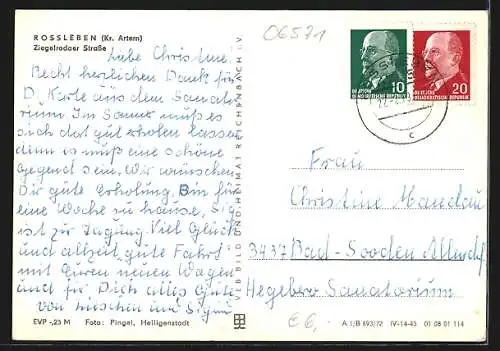 ROSSLEBEN (Kr. Artern)
Ziegelrodaer Straße
Liebe Christine!
Recht herzlichen Dank für
D. Karte aus dem Sanato-
rium Im Sommer muß es
sich dort gut erholen lassen
denn es muß eine schöne
Gegend sein. Wir wünschen
Dir gute Erholung. Bin für
eine Woche zu hause,
ist zur Tagung. Viel Glück
und allzeit gute Fahrt
mit Euren neuen Wagen
und für Dich alles Gute
von
EVP -,25 M Foto: Pingel, Heiligenstadt
VEB BILD UND HEIMAT REICHENBACH I. V.
06571
10
DEUTSCHE
DEMOKRATISCHE REPUBLIK
20
DEUTSCHE
DEMOKRATISCHE REPUBLIK
c
Frau
Christine Mandau
3437 Bad-Sooden Allendf
Sanatorium
€6,
A 1/B 693/72 IV-14-45 01 08 01 114